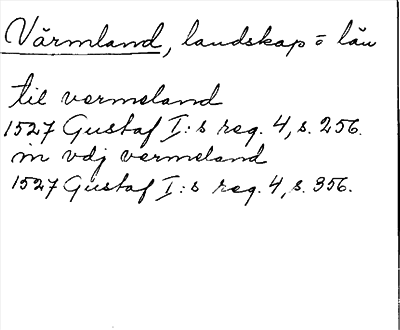 Värmland, landskap o län
til vermeland
1527 Gustaf I:s reg. 4, s. 256.
in vdj vermeland
1527 Gustaf I:s reg. 4, s. 356.